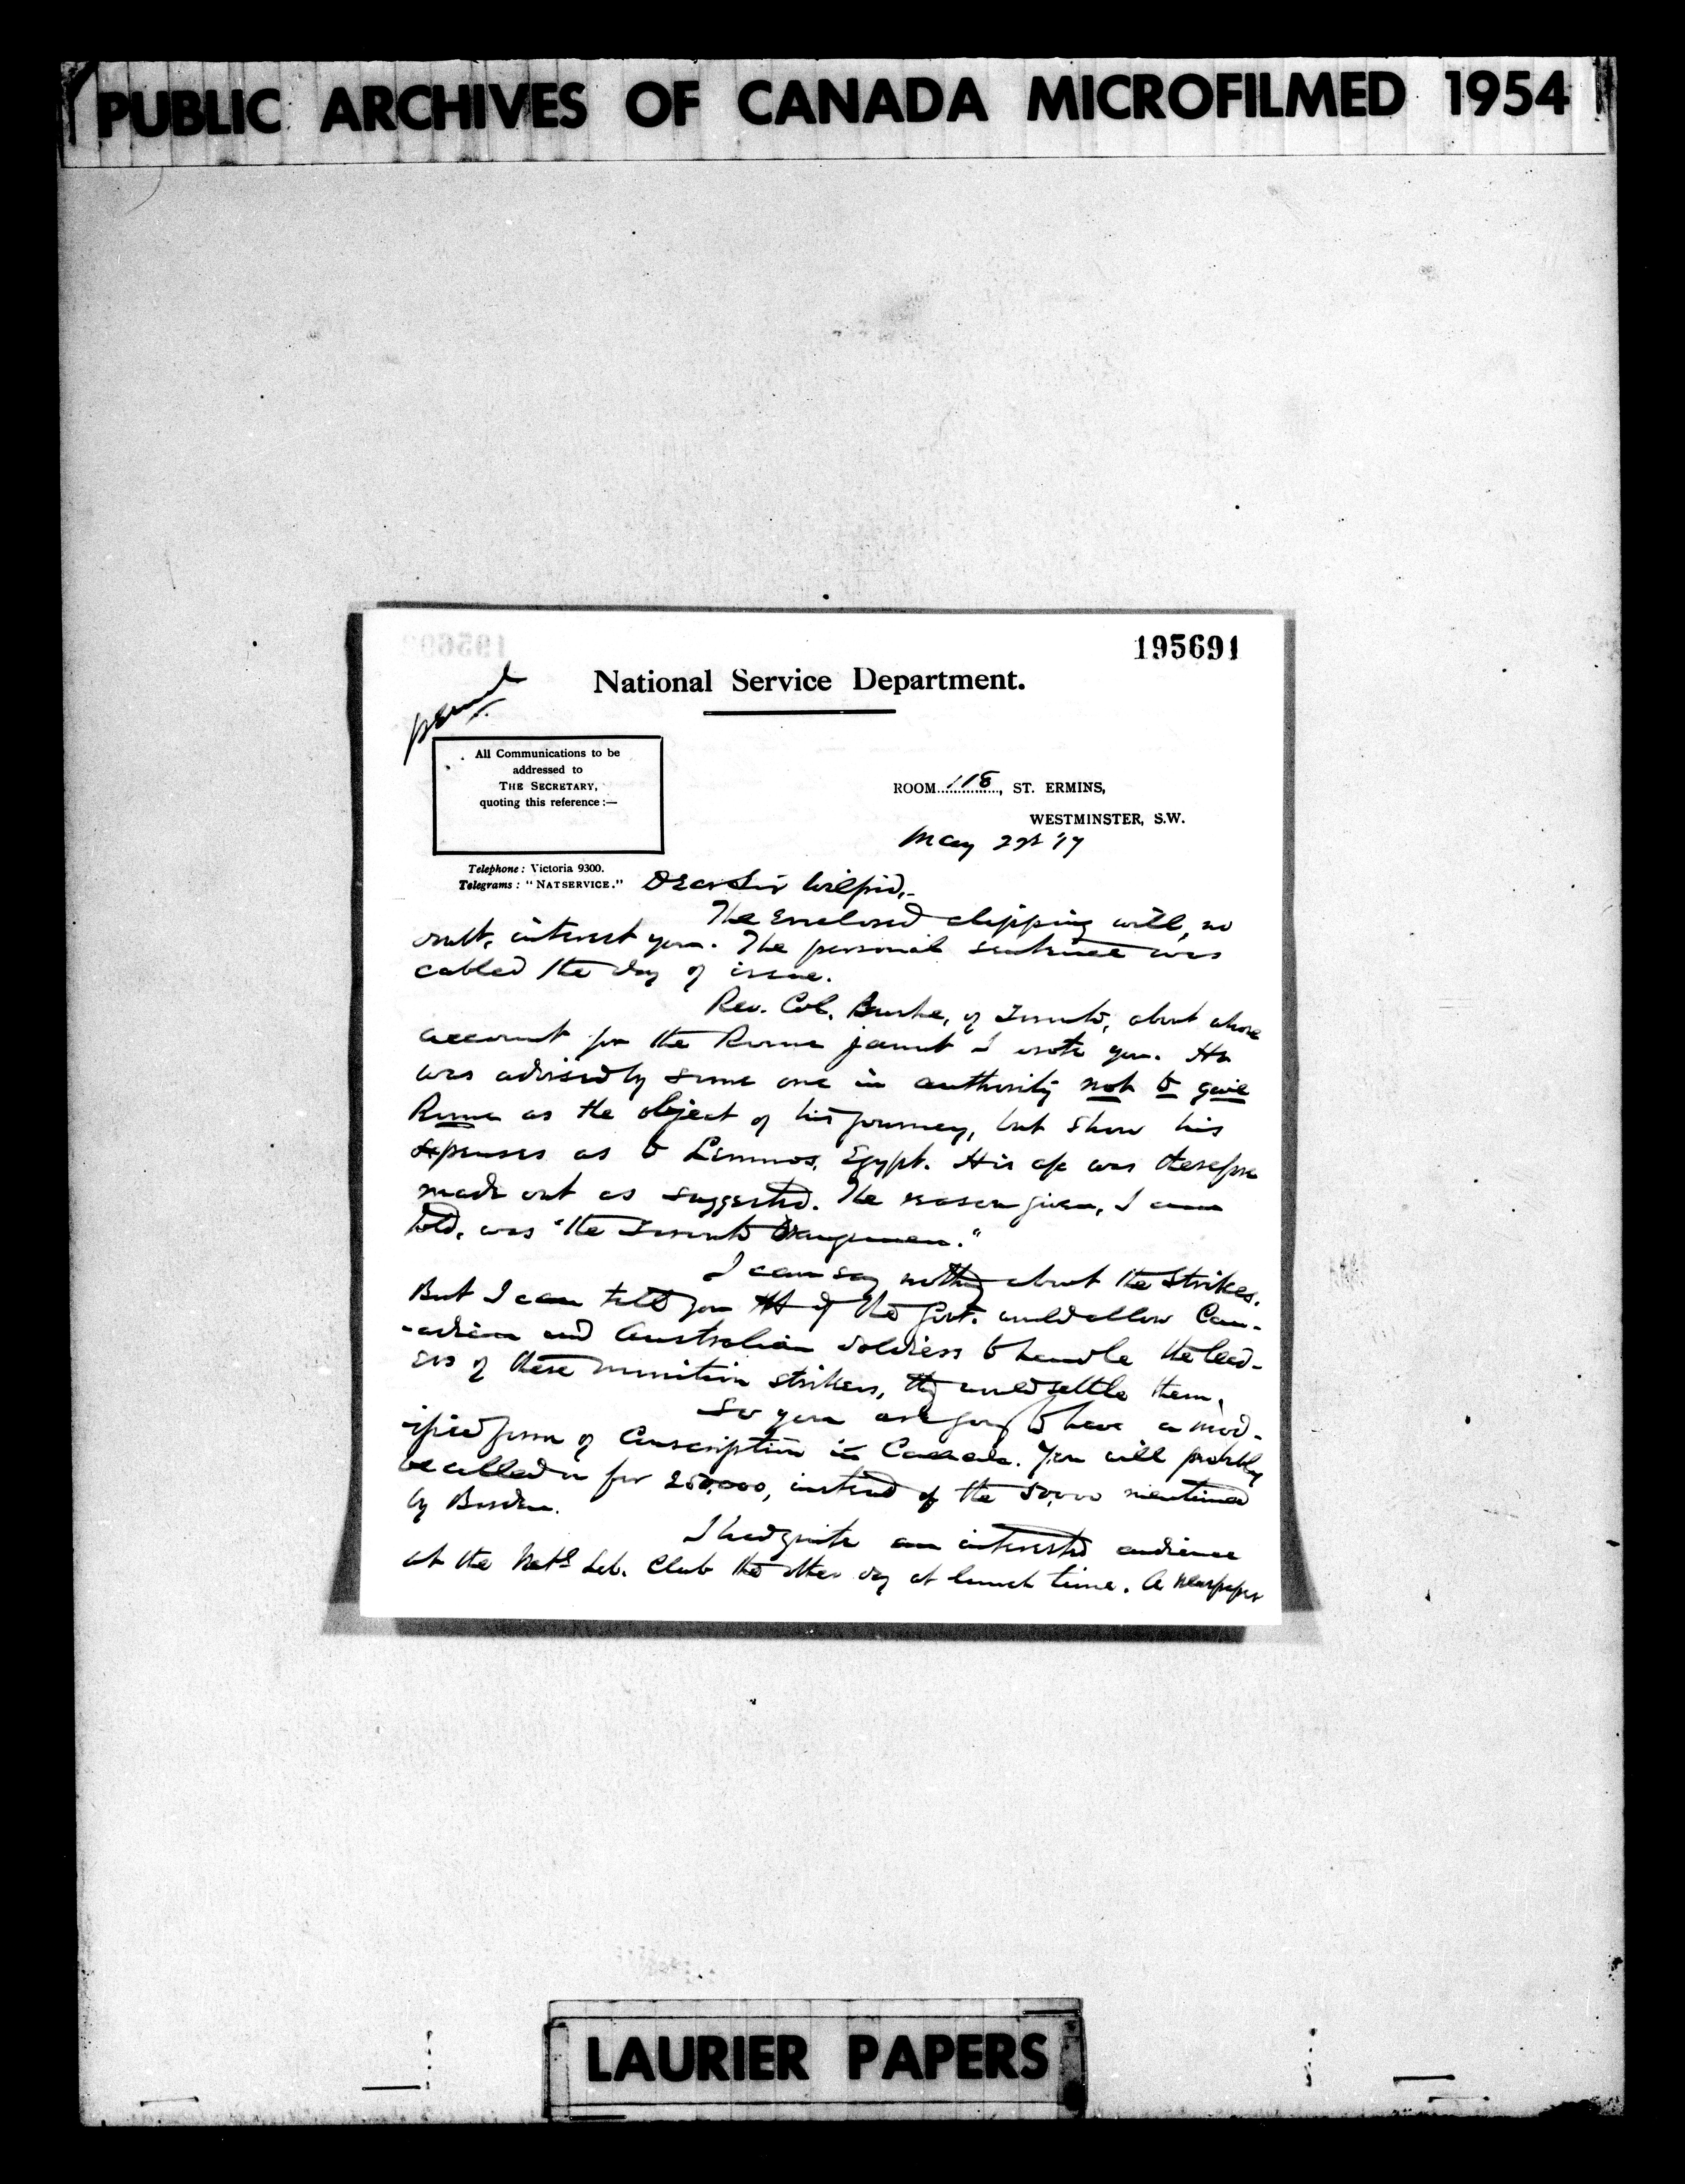 PUBLIC ARCHIVES OF CANADA MICROFILMED 1954
195691
National Service Department.
All Communications to be
addressed to
THE SECRETARY,
quoting this reference:—
ROOM 118, ST. ERMINS,
WESTMINSTER, S.W.
May 22 '17
Telephone: Victoria 9300.
Telegrams: "NATSERVICE."
Dear Sir Wilfrid,-
The enclosed clipping will, no
doubt, interest you. The personal sentence was
cabled the day of issue.
Rev. Col. Burke, of Toronto, about whose
account for the Rome jaunt I wrote you. He
was advised by some one in authority not to give
Rome as the object of his journey, but show his
expenses as to Lemnos, Egypt. His a/c was therefore
made out as suggested. The reason given, I am
told, was "the Toronto Orangemen."
I can say nothing about the strikes.
But I can tell you tht if the Govt. would allow Can-
-adian and Australian soldiers to handle the lead-
ers of these munition strikers, they would settle them.
So you are going to have a mod-
ified form of Conscription in Canada. You will probably
be called on for 250,000, instead of the 50,000 mentioned
by Borden.
I had quite an interested audience
at the Natl Lib. Club the other day at lunch time. A newspaper
LAURIER PAPERS